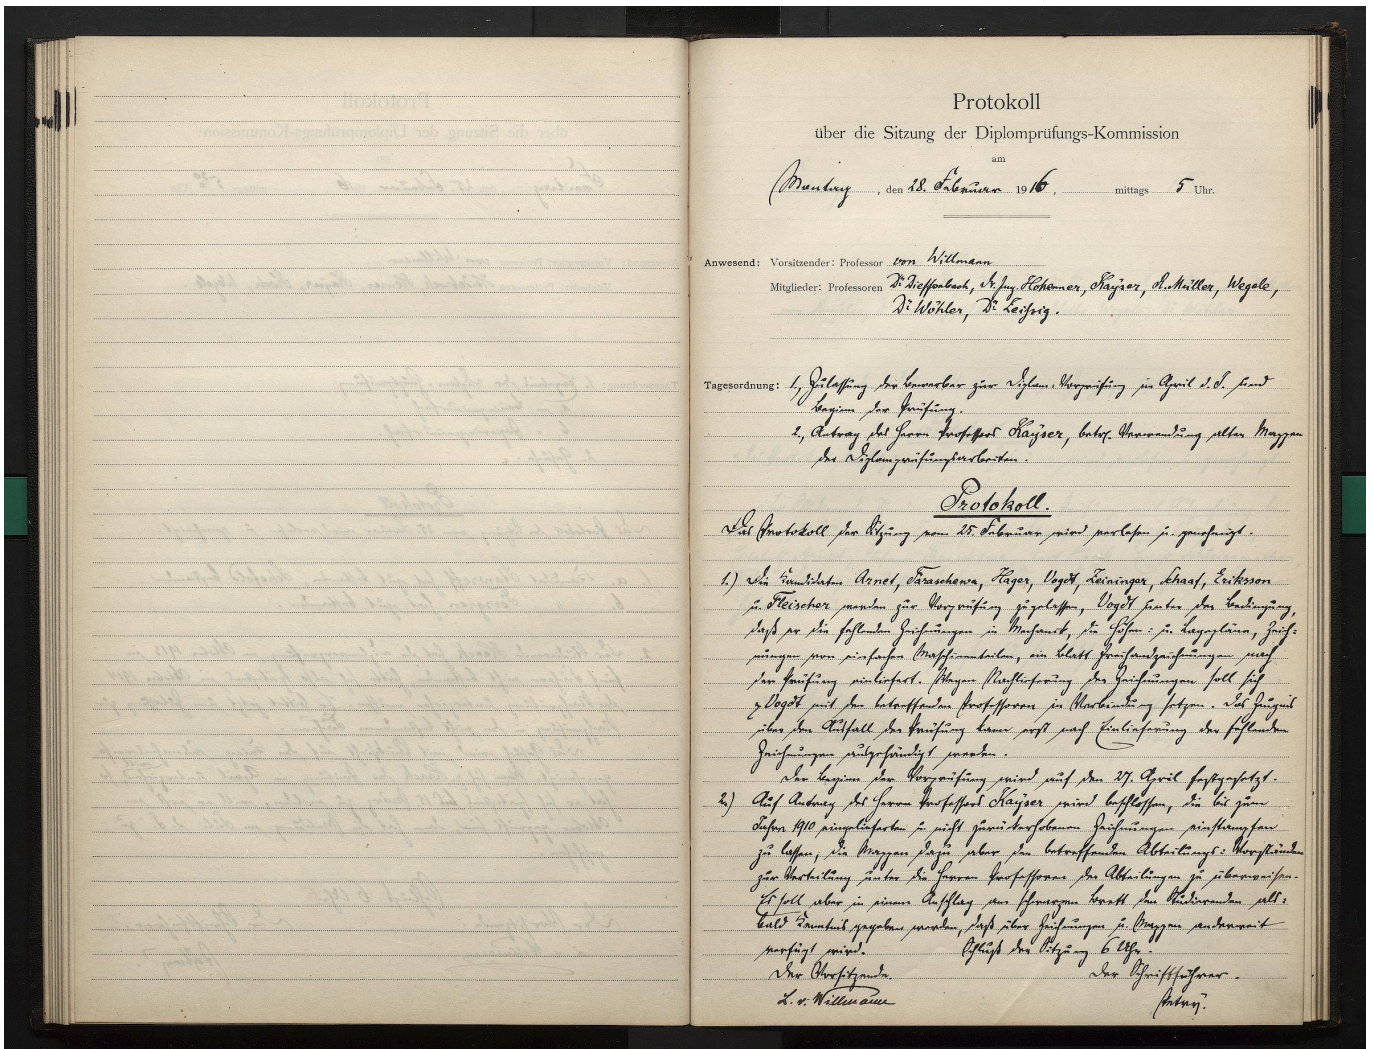 Protokoll
über die Sitzung der Diplomprüfungs-Kommission
am
Montag, den 28. Februar 1916. mittags 5 Uhr.
Anwesend: Vorsitzender: Professor von Willmann
Mitglieder: Professoren Dr Dieffenbach, Dr. Ing. Hohenner, Kayser, R. Müller, Wegele,
Dr Wöhler, Dr Zeissig.
Tagesordnung: 1., Zulassung der Bewerber zur Diplom-Vorprüfung im April d. J. und
Beginn der Prüfung.
2., Antrag des Herrn Professors Kayser, betr. Verwendung alter Mappen
der Diplomprüfungsarbeiten.
Protokoll.
Das Protokoll der Sitzung vom 25. Februar wird verlesen u. genehmigt.
1.) Die Kandidaten Arnet, Taraschewa, Hager, Vogdt, Zeininger, Schaaf, Eriksson
u. Fleischer werden zur Vorprüfung zugelassen, Vogdt unter der Bedingung,
daß er die fehlenden Zeichnungen in Mechanik, die Höhen: u. Lagepläne, Zeich:
nungen von einfachen Maschinenteilen, ein Blatt Freihandzeichnungen nach
der Prüfung einliefert. Wegen Nachlieferung der Zeichnungen soll sich
Vogdt mit den betreffenden Professoren in Verbindung setzen. Das Zeugnis
über den Ausfall der Prüfung kann erst nach Einlieferung der fehlenden
Zeichnungen ausgehändigt werden.
Der Beginn der Vorprüfung wird auf den 27. April festgesetzt.
2.) Auf Antrag des Herrn Professors Kayser wird beschlossen, die bis zum
Jahre 1910 eingelieferten u. nicht zurückerhobenen Zeichnungen einstampfen
zu lassen, die Mappen dazu aber den betreffenden Abteilungs: Vorständen
zur Verteilung unter die Herren Professoren der Abteilungen zu überweisen.
Es soll aber in einem Anschlag am schwarzen Brett den Studierenden als:
bald Kenntnis gegeben werden, daß über Zeichnungen u. Mappen anderweit
verfügt wird. Schluß der Sitzung 6 Uhr.
Der Vorsitzende. Der Schriftführer.
L. v. Willmann Petry.